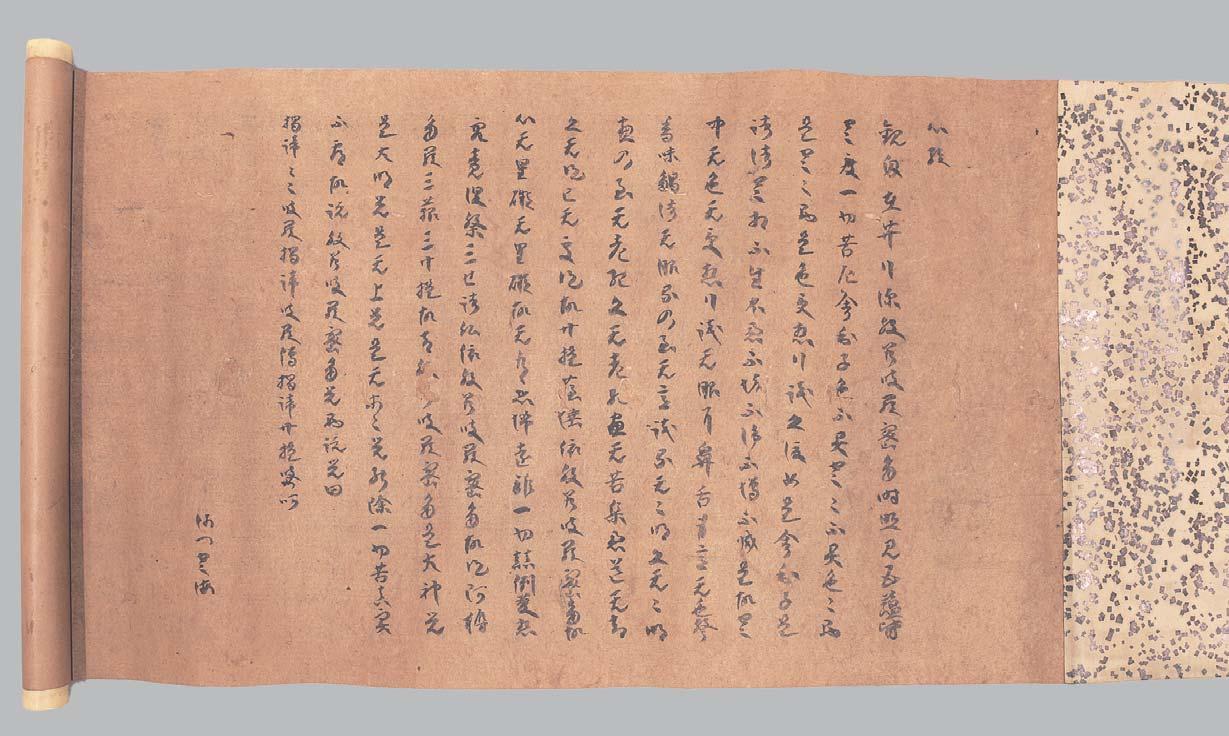 心経
観自在菩薩行深般若波羅蜜多時照見五蘊皆
空度一切苦厄舎利子色不異空々不異色々即
是空々即是色受想行識亦復如是舎利子是
諸法空相不生不滅不垢不浄不増不減是故空
中无色无受想行識无眼耳鼻舌身意无色声
香味触法无眼界乃至无意識界无々明亦无々明
尽乃至无老死亦无老死尽无苦集滅道无智
亦无得已无所得故菩提薩埵依般若波羅蜜多故
心无罣礙无罣礙故无有恐怖遠離一切顛倒夢想
究竟涅槃三世諸仏依般若波羅蜜多故得阿耨
多羅三藐三菩提故知般若波羅蜜多是大神呪
是大明呪是无上呪是无等々呪能除一切苦真実
不虚故説般若波羅蜜多呪即説呪曰
掲諦々々波羅掲諦波羅僧掲諦菩提娑呵
沙門空海